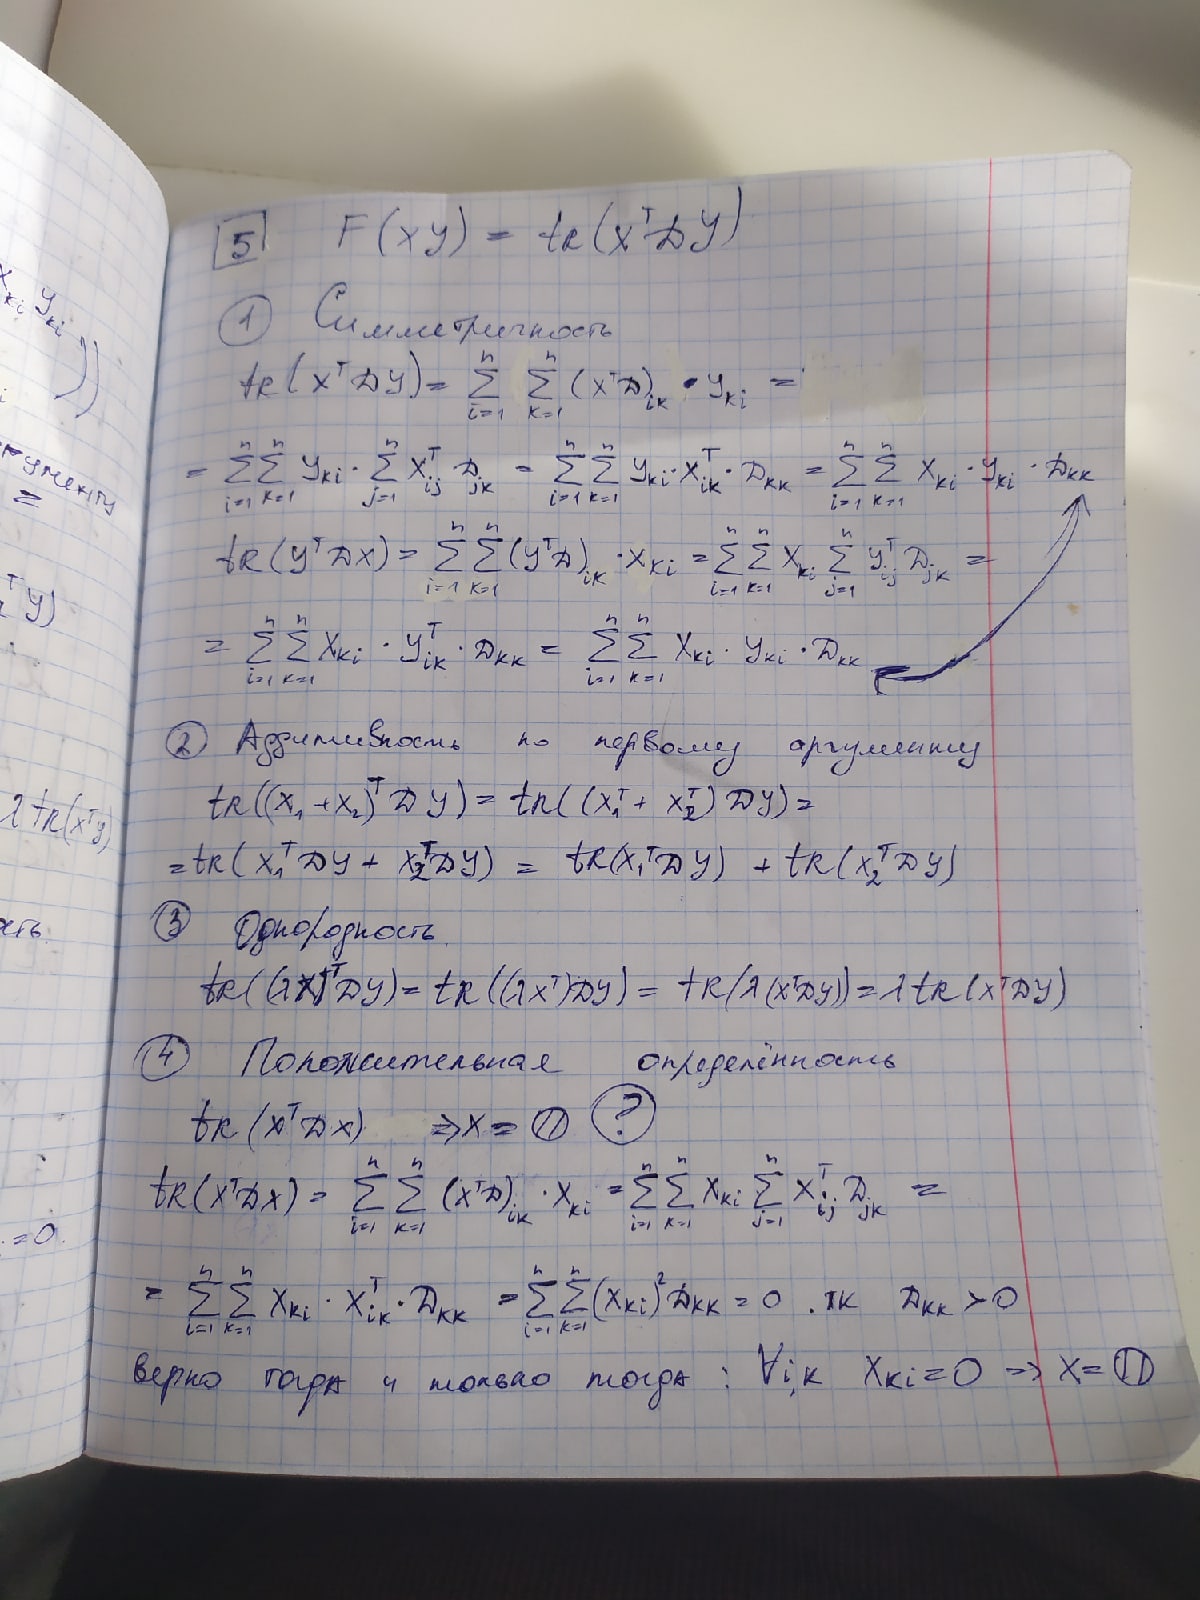 x_{ki} y_{ki}))
аргументу
=
^T y)
λ tr(x^T y)
сть.
. = 0.
5 F(xy) = tr(x^T D y)
① Симметричность
tr(x^T D y) = \sum_{i=1}^n \sum_{k=1}^n (x^T D)_{ik} · y_{ki} =
= \sum_{i=1}^n \sum_{k=1}^n y_{ki} · \sum_{j=1}^n x_{ij}^T D_{jk} = \sum_{i=1}^n \sum_{k=1}^n y_{ki} · x_{ik}^T · D_{kk} = \sum_{i=1}^n \sum_{k=1}^n x_{ki} · y_{ki} · D_{kk}
tr(y^T D x) = \sum_{i=1}^n \sum_{k=1}^n (y^T D)_{ik} · x_{ki} = \sum_{i=1}^n \sum_{k=1}^n x_{ki} \sum_{j=1}^n y_{ij}^T D_{jk} =
= \sum_{i=1}^n \sum_{k=1}^n x_{ki} · y_{ik}^T · D_{kk} = \sum_{i=1}^n \sum_{k=1}^n x_{ki} · y_{ki} · D_{kk}
② Аддитивность по первому аргументу
tr((x_1 + x_2)^T D y) = tr((x_1^T + x_2^T) D y) =
= tr(x_1^T D y + x_2^T D y) = tr(x_1^T D y) + tr(x_2^T D y)
③ Однородность
tr((λx)^T D y) = tr((λx^T) D y) = tr(λ(x^T D y)) = λ tr(x^T D y)
④ Положительная определённость
tr(x^T D x) ⇒ x = 𝟘 ?
tr(x^T D x) = \sum_{i=1}^n \sum_{k=1}^n (x^T D)_{ik} · x_{ki} = \sum_{i=1}^n \sum_{k=1}^n x_{ki} \sum_{j=1}^n x_{ij}^T D_{jk} =
= \sum_{i=1}^n \sum_{k=1}^n x_{ki} · x_{ik}^T · D_{kk} = \sum_{i=1}^n \sum_{k=1}^n (x_{ki})^2 D_{kk} = 0 . тк D_{kk} > 0
верно тогда и только тогда : ∀i,k x_{ki} = 0 ⇒ x = 𝟘